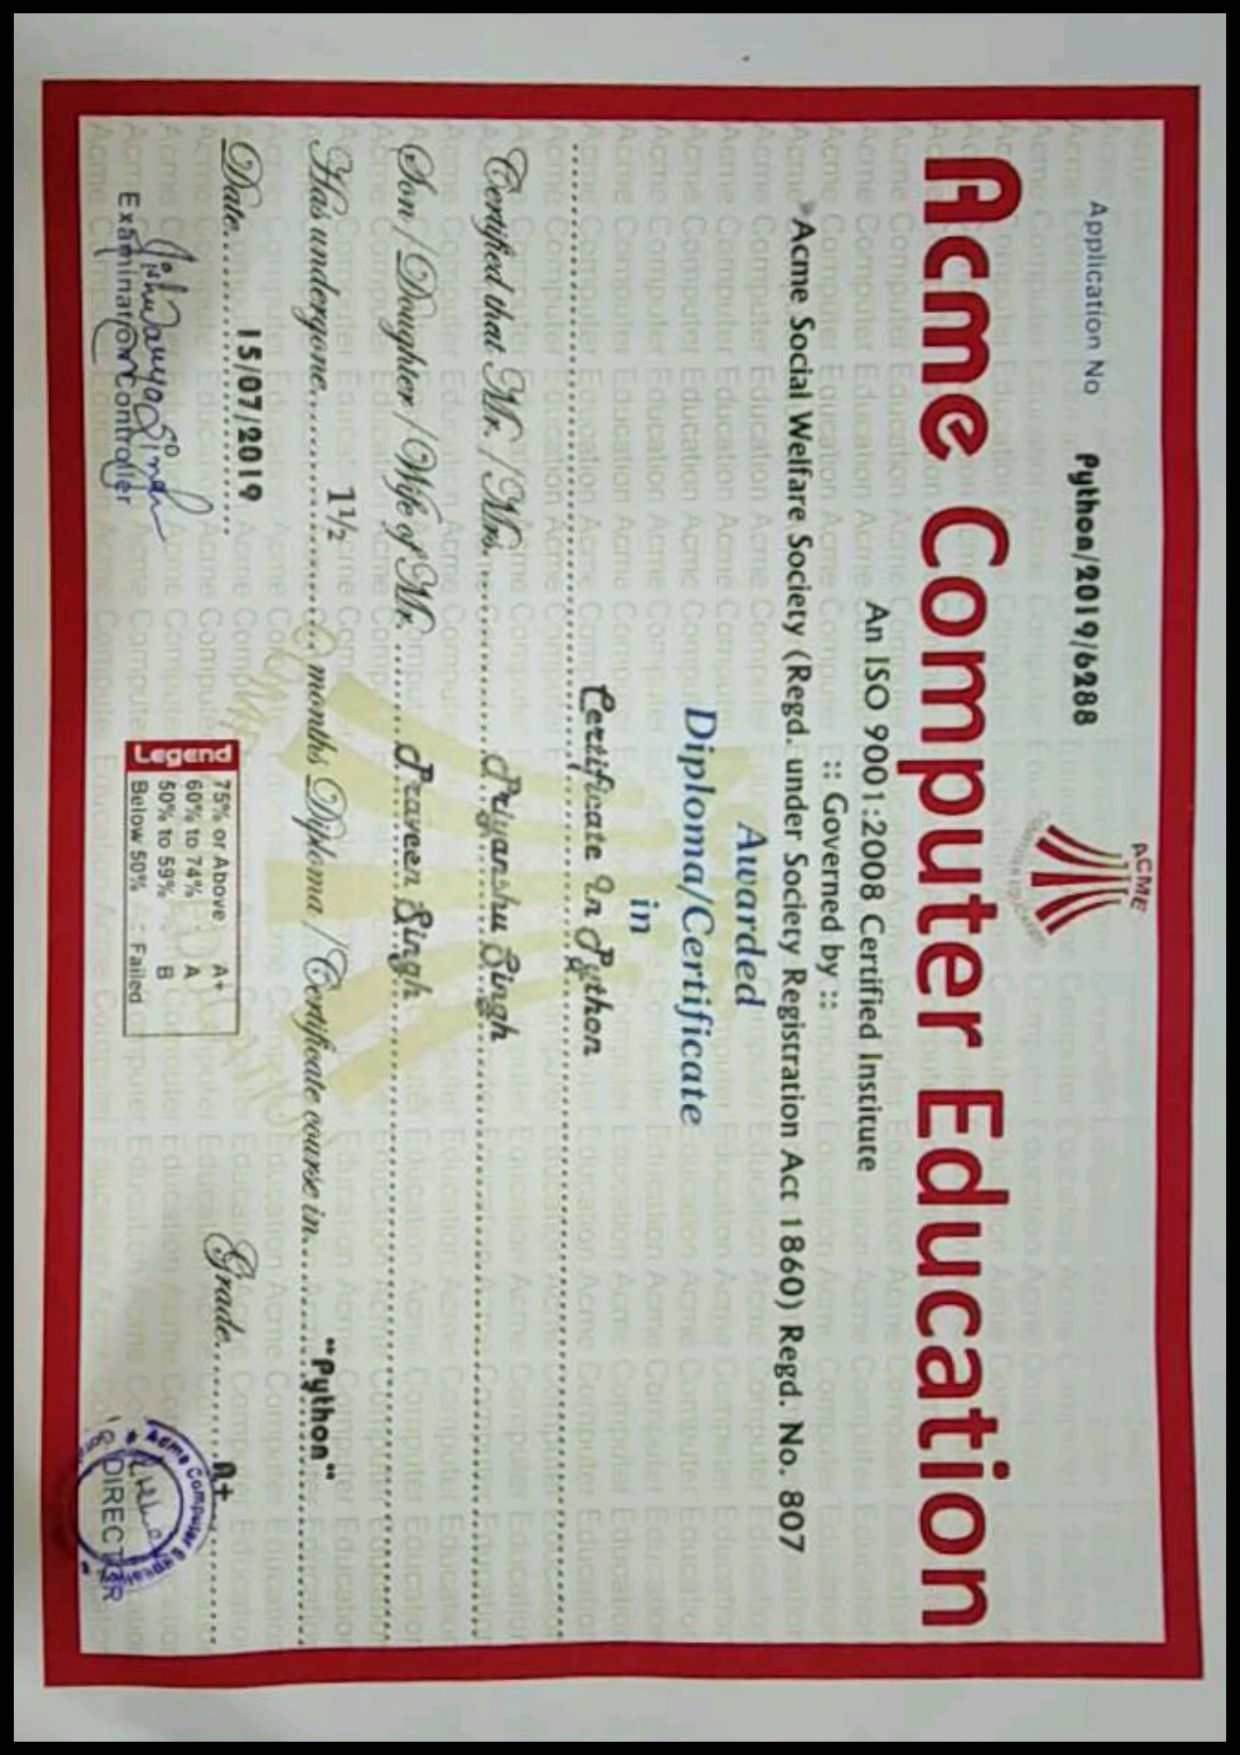 Application No Python/2019/6288
ACME
Acme Computer Education
An ISO 9001:2008 Certified Institute
:: Governed by ::
Acme Social Welfare Society (Regd. under Society Registration Act 1860) Regd. No. 807
Awarded
Diploma/Certificate
in
Certificate In Python
Certified that Mr. / Mrs. Priyanshu Singh
Son / Doughter / Wife of Mr. Praveen Singh
Has undergone 1½ months Diploma / Certificate course in "Python"
Date 15/07/2019
Grade A+
Legend
75% or Above : A+
60% to 74% : A
50% to 59% : B
Below 50% : Failed
Examination Controller
Acme Computer Education
DIRECTOR